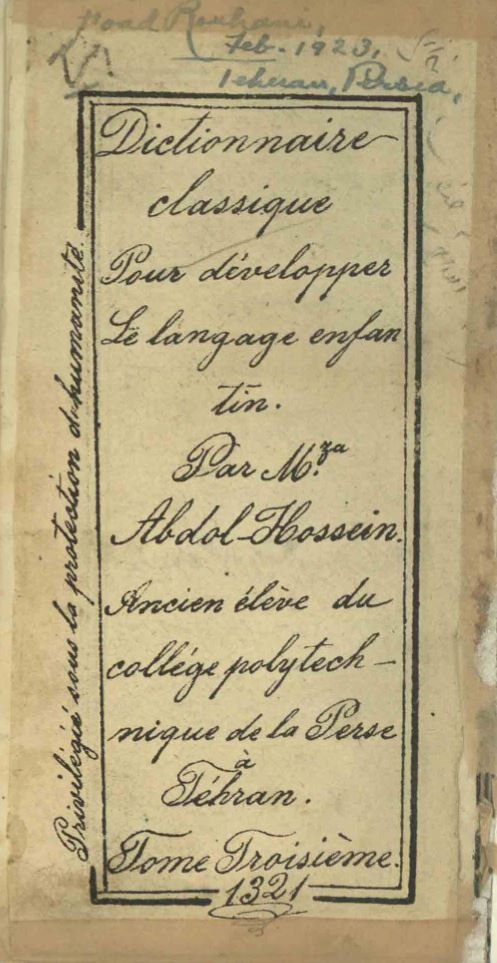 Fuad Rouhani,
Feb. 1923,
Teheran, Persia,
Dictionnaire
classique
Pour développer
Le langage enfan
tin.
Par M.za
Abdol-Hossein.
Ancien élève du
collége polytech-
nique de la Perse
à
Téhran.
Tome Troisième.
1321
Privilégié sous la protection d'humanité.